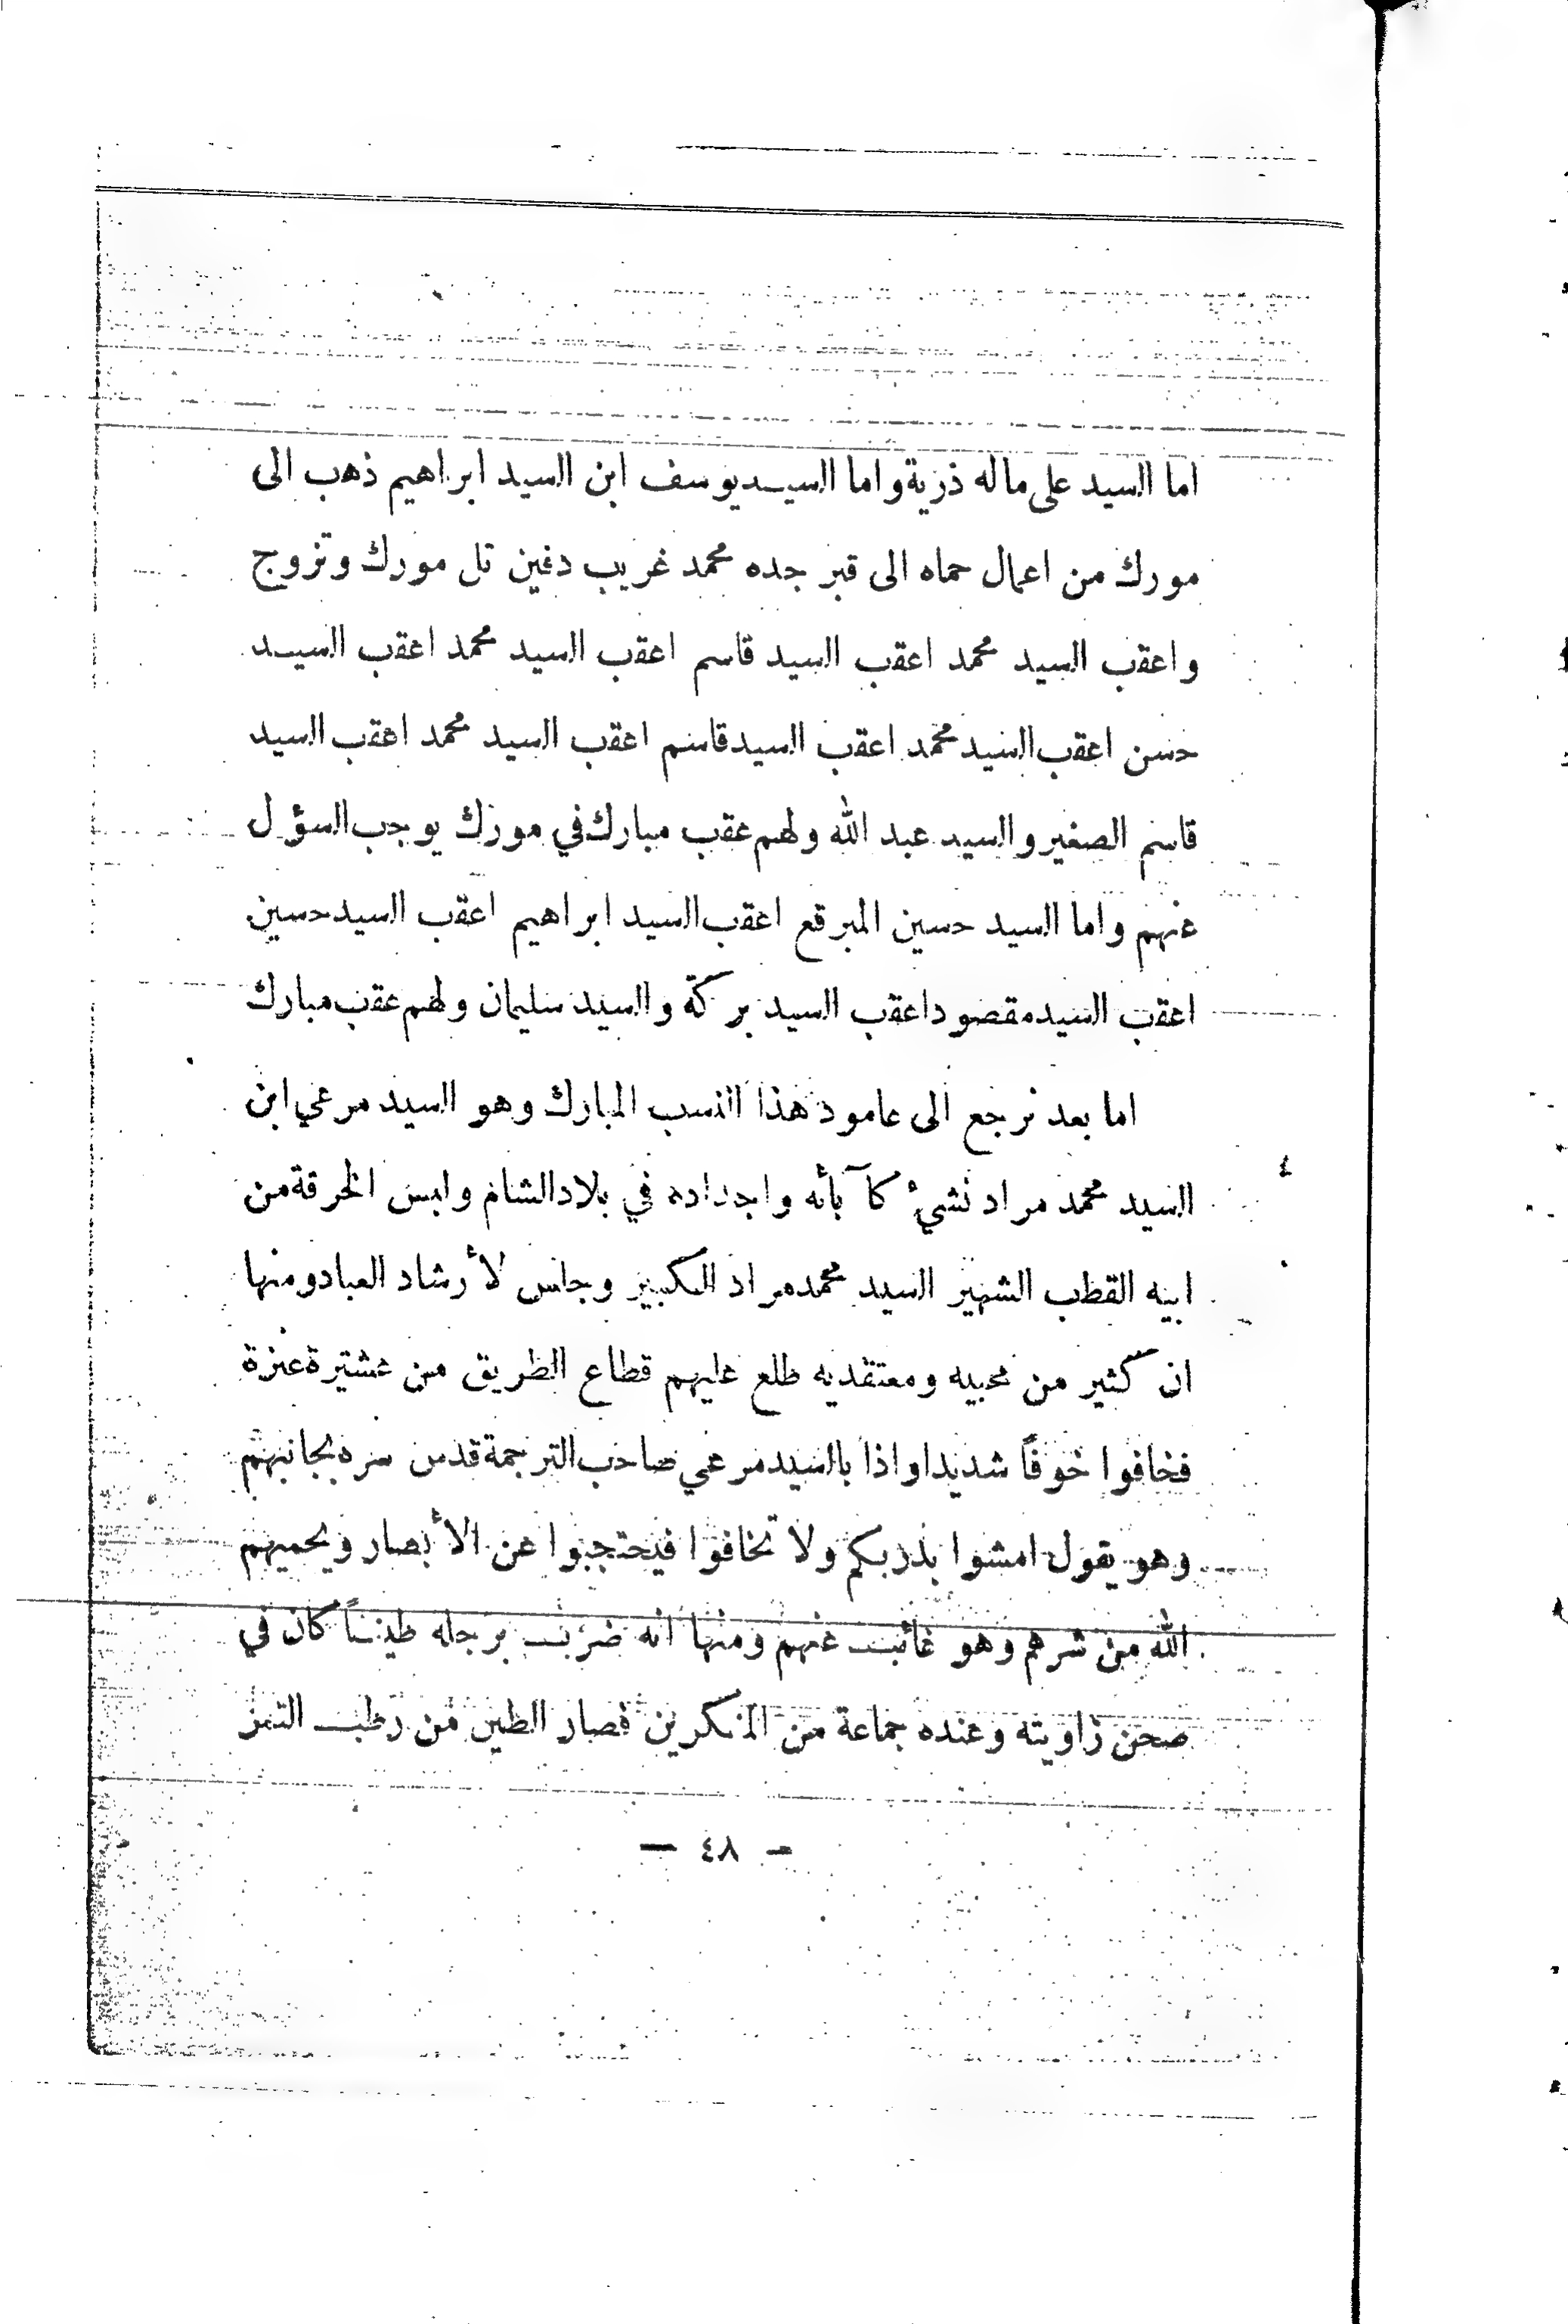 اما السيد على ماله ذرية واما السيد يوسف ابن السيد ابراهيم ذهب الى
مورك من اعمال حماه الى قبر جده محمد غريب دفين تل مورك وتزوج
واعقب السيد محمد اعقب السيد قاسم اعقب السيد محمد اعقب السيد
حسن اعقب السيد محمد اعقب السيد قاسم اعقب السيد محمد اعقب السيد
قاسم الصغير والسيد عبد الله ولهم عقب مبارك في مورك يوجب السؤل
عنهم واما السيد حسين المبرقع اعقب السيد ابراهيم اعقب السيد حسين
اعقب السيد مقصود اعقب السيد بركة والسيد سليمان ولهم عقب مبارك
اما بعد نرجع الى عامود هذا النسب المبارك وهو السيد مرعي ابن
السيد محمد مراد نشئ كآبأئه واجداده في بلاد الشام ولبس الخرقة من
ابيه القطب الشهير السيد محمد مراد الكبير وجلس لأرشاد العباد ومنها
ان كثير من محبيه ومعتقديه طلع عليهم قطاع الطريق من عشيرة عنزة
فخافوا خوفاً شديدا واذا بالسيد مرعي صاحب الترجمة قدس سره بجانبهم
وهو يقول امشوا بدربكم ولا تخافوا فيحتجبوا عن الأبصار ويحميهم
الله من شرهم وهو غائب عنهم ومنها انه ضرب برجله طيناً كان في
صحن زاويته وعنده جماعة من المنكرين فصار الطين من رطب التمر
- ٤٨ -